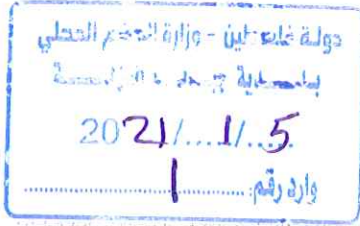 دولة فلسطين - وزارة الحكم المحلي
2021/1/5
وارد رقم: 1